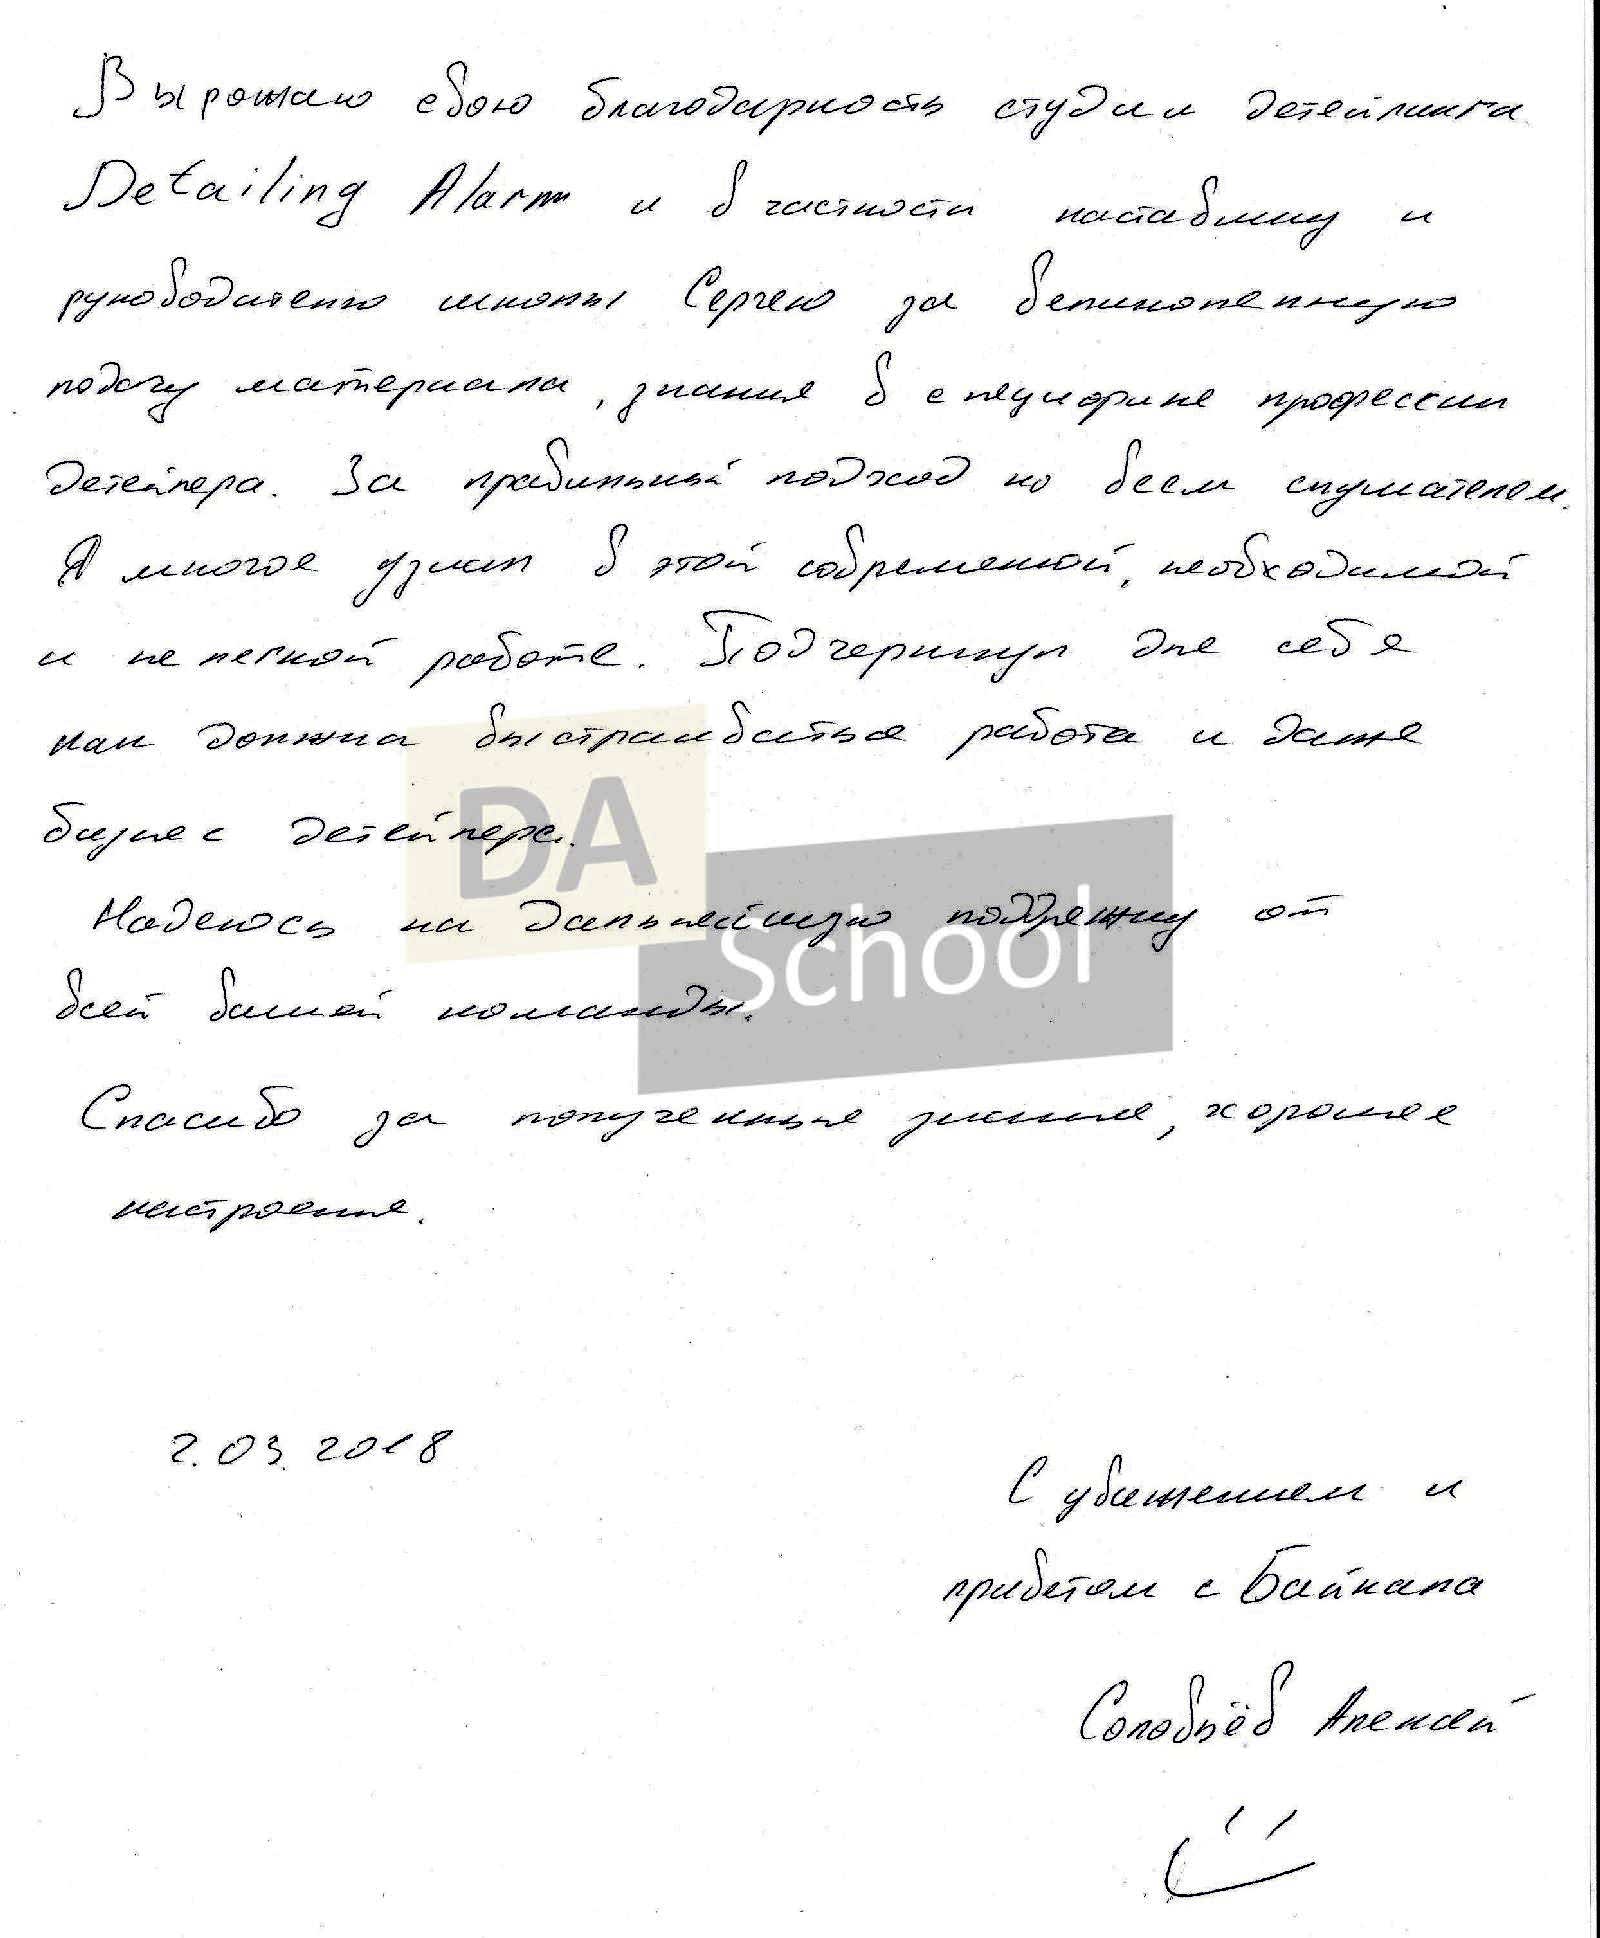 Вырожаю свою благодарность студии детейлинга
Detailing Alarm и в частности наставнику и
руководителю школы Сергею за великолепную
подачу материала, знания в специфике профессии
детейлера. За правильный подход ко всем слушателем.
Я многое узнал в этой современной, необходимой
и не легкой работе. Подчеркнул для себя
как должна выстраиваться работа и даже
бизнес детейлера.
DA
School
Надеюсь на дальнейшую поддрежку от
всей вашей команды.
Спасибо за полученные знания, хорошее
настроение.
2.03.2018
С уважением и
приветом с Байкала
Соловьёв Алексей